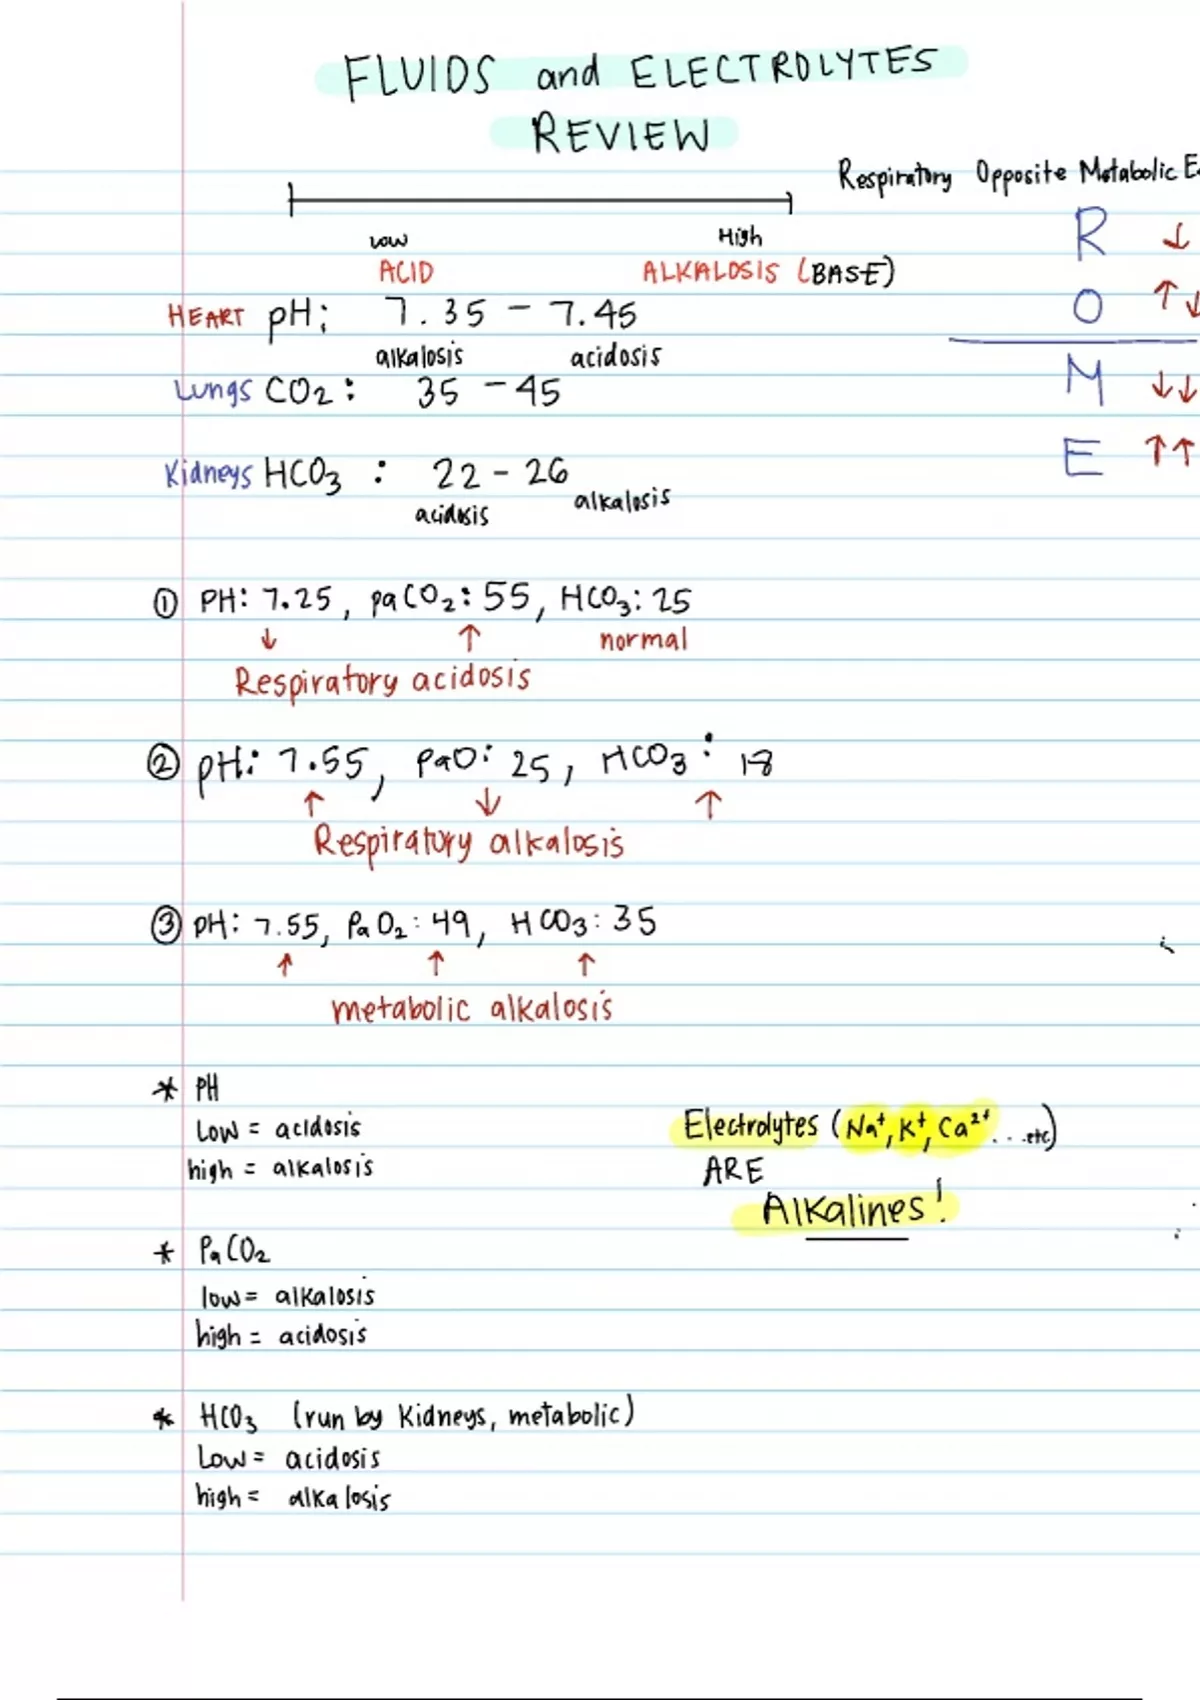 FLUIDS and ELECTROLYTES
REVIEW
Respiratory Opposite Metabolic E
Low High
ACID ALKALOSIS (BASE)
R ↓
O ↑↓
M ↓↓
E ↑↑
HEART pH: 7.35 - 7.45
alkalosis acidosis
Lungs CO2: 35 - 45
Kidneys HCO3 : 22 - 26
acidosis alkalosis
① PH: 7.25, paCO2: 55, HCO3: 25
↓ ↑ normal
Respiratory acidosis
② pH: 7.55, PaO: 25, HCO3: 18
↑ ↓ ↑
Respiratory alkalosis
③ pH: 7.55, PaO2: 49, HCO3: 35
↑ ↑ ↑
metabolic alkalosis
* PH
Low = acidosis
high = alkalosis
Electrolytes (Na+, K+, Ca2+...etc)
ARE
Alkalines!
* PaCO2
low = alkalosis
high = acidosis
* HCO3 (run by Kidneys, metabolic)
Low = acidosis
high = alkalosis